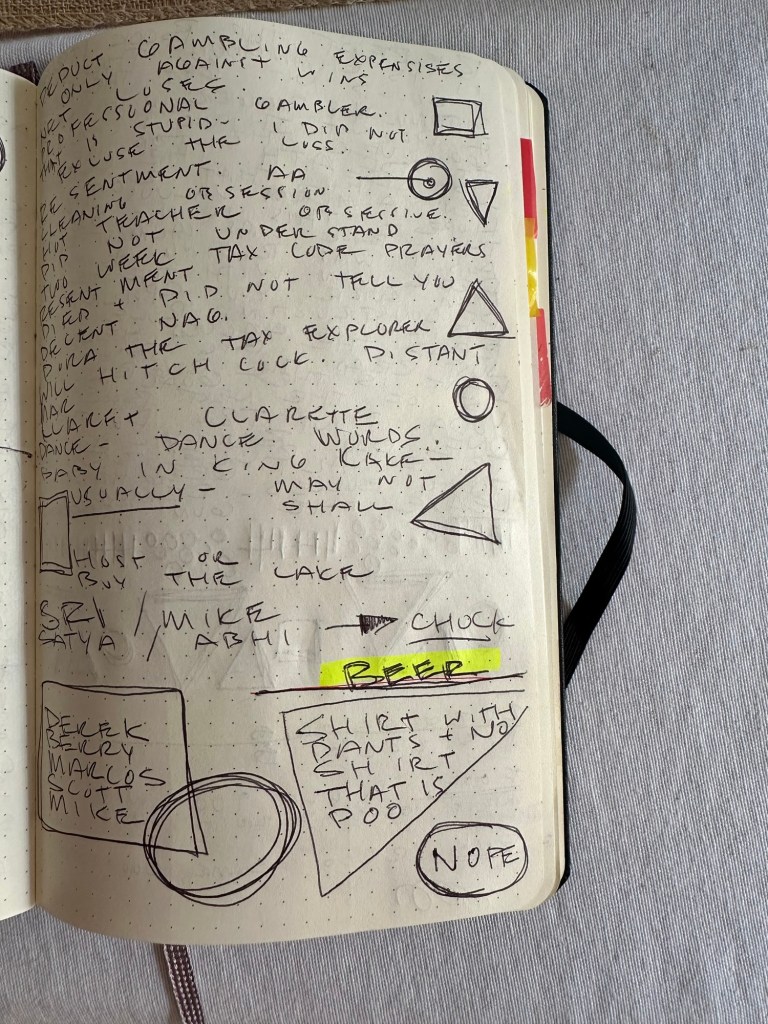 DEDUCT GAMBLING EXPENSISES
ONLY AGAINST WINS
NET LOSES.
PROFESSIONAL GAMBLER.
THAT IS STUPID - I DID NOT
EXCUSE THE LOSS.
RESENTMENT. AA
CLEANING OBSESSION
HOT TEACHER OBSESSIVE.
DID NOT UNDERSTAND
TWO WEEK TAX CODE PRAYERS
RESENTMENT
DIED + DID NOT TELL YOU
DECENT NAG.
DORA THE TAX EXPLORER
WILL HITCH COCK. DISTANT
MAR
CLARET CLARETTE
DANCE - DANCE WORDS.
BABY IN KING KAKE -
USUALLY - MAY NOT
SHALL
HOST OR
BUY THE CAKE
SRI / MIKE
SATYA / ABHI → CHUCK
BEER
DEREK
BERRY
MARCOS
SCOTT
MIKE
SHIRT WITH
PANTS + NO
SHIRT
THAT IS
POO
NOPE